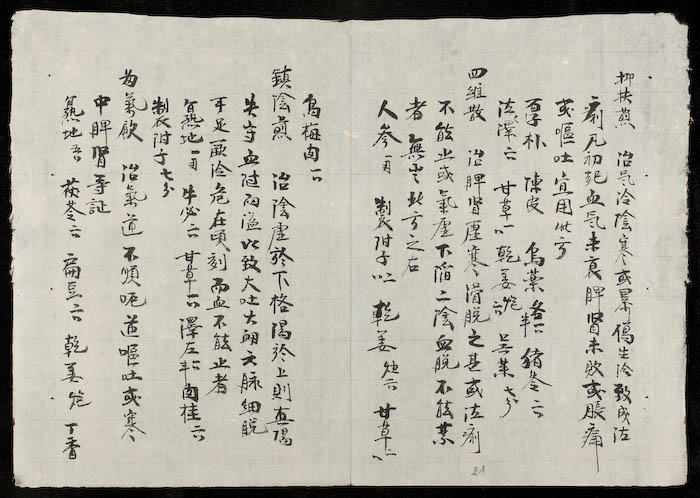 抑扶煎 治氣冷陰寒或暴傷生冷致成泻
痢凡初起血氣未衰脾腎未敗或脹痛
或嘔吐宜用此方
厚朴 陳皮 烏葉各 半 猪苓六
泻澤六 甘草 乾姜炮 吴茱七分
四維散 治脾腎虛寒滑脱之甚或泻痢
不能止或氣虛下陷二陰血脱不能禁
者無出此方之右
人參一両 製附子 乾姜炮 甘草
21
烏梅肉
鎮陰煎 治陰虛於下格陽於上則真陽
失守血隨而溢以致大吐大衄六脉細脱
手足厥冷危在頃刻而血不能止者
熟地一両 牛必六 甘草 澤左 肉桂六
製附子七分
治氣道不順呃逆嘔吐或寒
中脾腎等証
熟地 茯苓 扁豆 乾姜炮 丁香